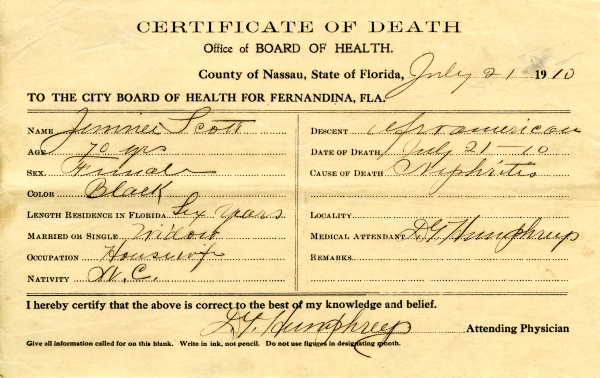 CERTIFICATE OF DEATH
Office of BOARD OF HEALTH.
County of Nassau, State of Florida, July 21 1910
TO THE CITY BOARD OF HEALTH FOR FERNANDINA, FLA.
NAME Jennies Scott
AGE 70 yrs
SEX. Female
COLOR Black
LENGTH RESIDENCE IN FLORIDA. Six years
MARRIED OR SINGLE Widow
OCCUPATION Housewife
NATIVITY N.C.
DESCENT Afroamerican
DATE OF DEATH July 21-10
CAUSE OF DEATH Nephritis
LOCALITY
MEDICAL ATTENDANT D.G. Humphreys
REMARKS
I hereby certify that the above is correct to the best of my knowledge and belief.
D.G. Humphreys Attending Physician
Give all information called for on this blank. Write in ink, not pencil. Do not use figures in designating month.